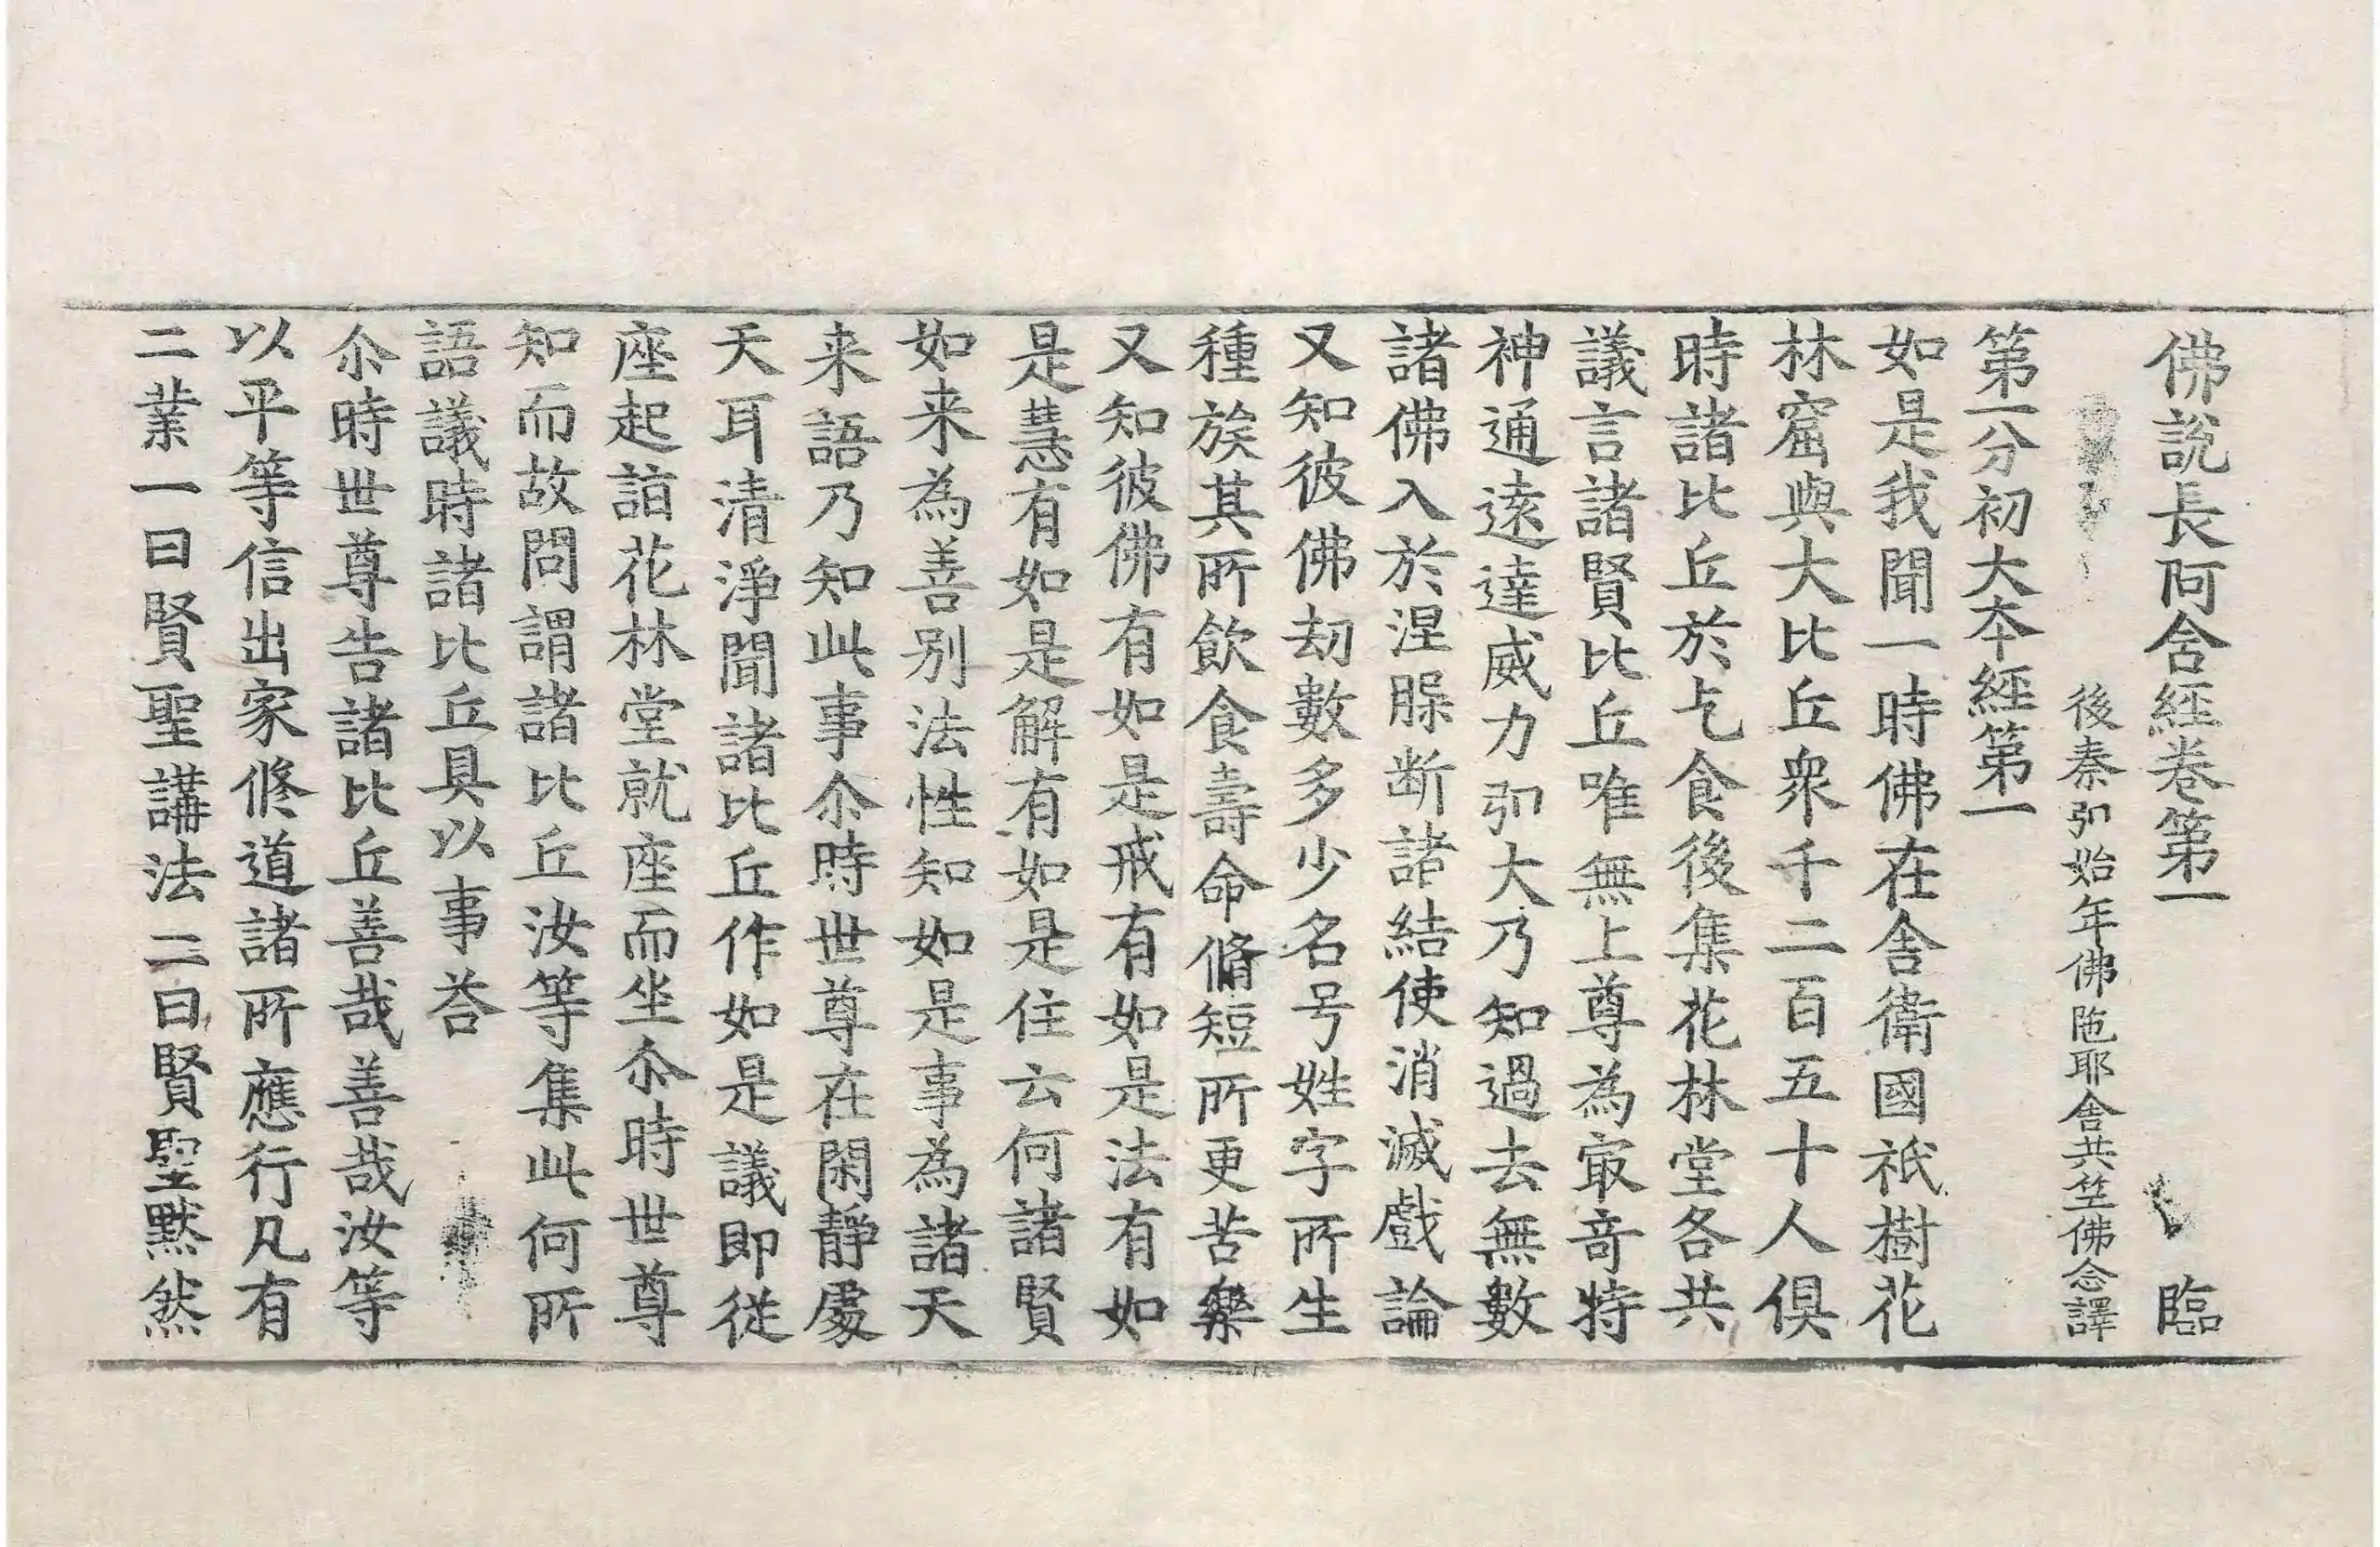 佛說長阿含經卷第一 臨
後秦弘始年佛陁耶舍共笁佛念譯
第一分初大本經第一
如是我聞一時佛在舍衛國祇樹花
林窟與大比丘衆千二百五十人俱
時諸比丘於乞食後集花林堂各共
議言諸賢比丘唯無上尊為㝡竒特
神通遠達威力弘大乃知過去無數
諸佛入於涅槃断諸結使消滅戲論
又知彼佛劫數多少名号姓字所生
種族其所飲食壽命脩短所更苦樂
又知彼佛有如是戒有如是法有如
是慧有如是解有如是住云何諸賢
如来為善别法性知如是事為諸天
来語乃知此事尒時世尊在閑靜處
天耳清淨聞諸比丘作如是議即從
座起詣花林堂就座而坐尒時世尊
知而故問謂諸比丘汝等集此何所
語議時諸比丘具以事荅
尒時世尊告諸比丘善哉善哉汝等
以平等信出家修道諸所應行凡有
二業一曰賢聖講法二曰賢聖默然